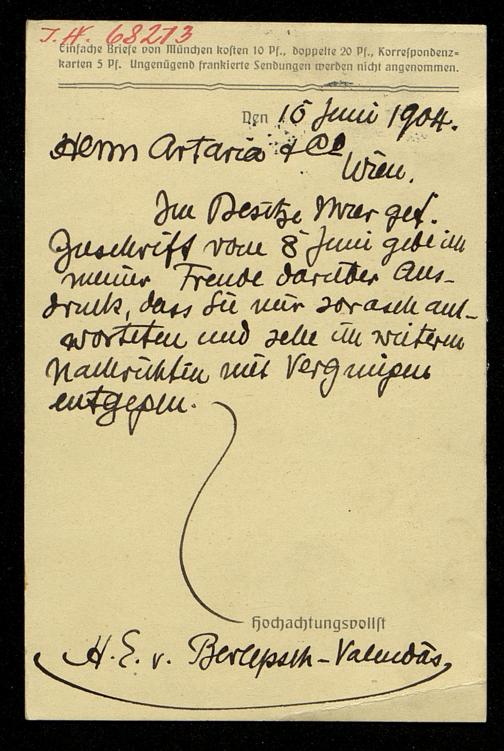 J.N. 68213
Einfache Briefe von München kosten 10 Pf., doppelte 20 Pf., Korrespondenz=
karten 5 Pf. Ungenügend frankierte Sendungen werden nicht angenommen.
Den 15 Juni 1904.
Herrn Artaria & Co
Wien.
Im Besitze Ihrer gef.
Zuschrift vom 8 Juni gebe ich
meiner Freude darüber Aus-
druck, dass Sie mir so rasch ant-
worteten und sehe Ihren weiteren
Nachrichten mit Vergnügen
entgegen.
Hochachtungsvollst
H. E. v. Berlepsch-Valendas,